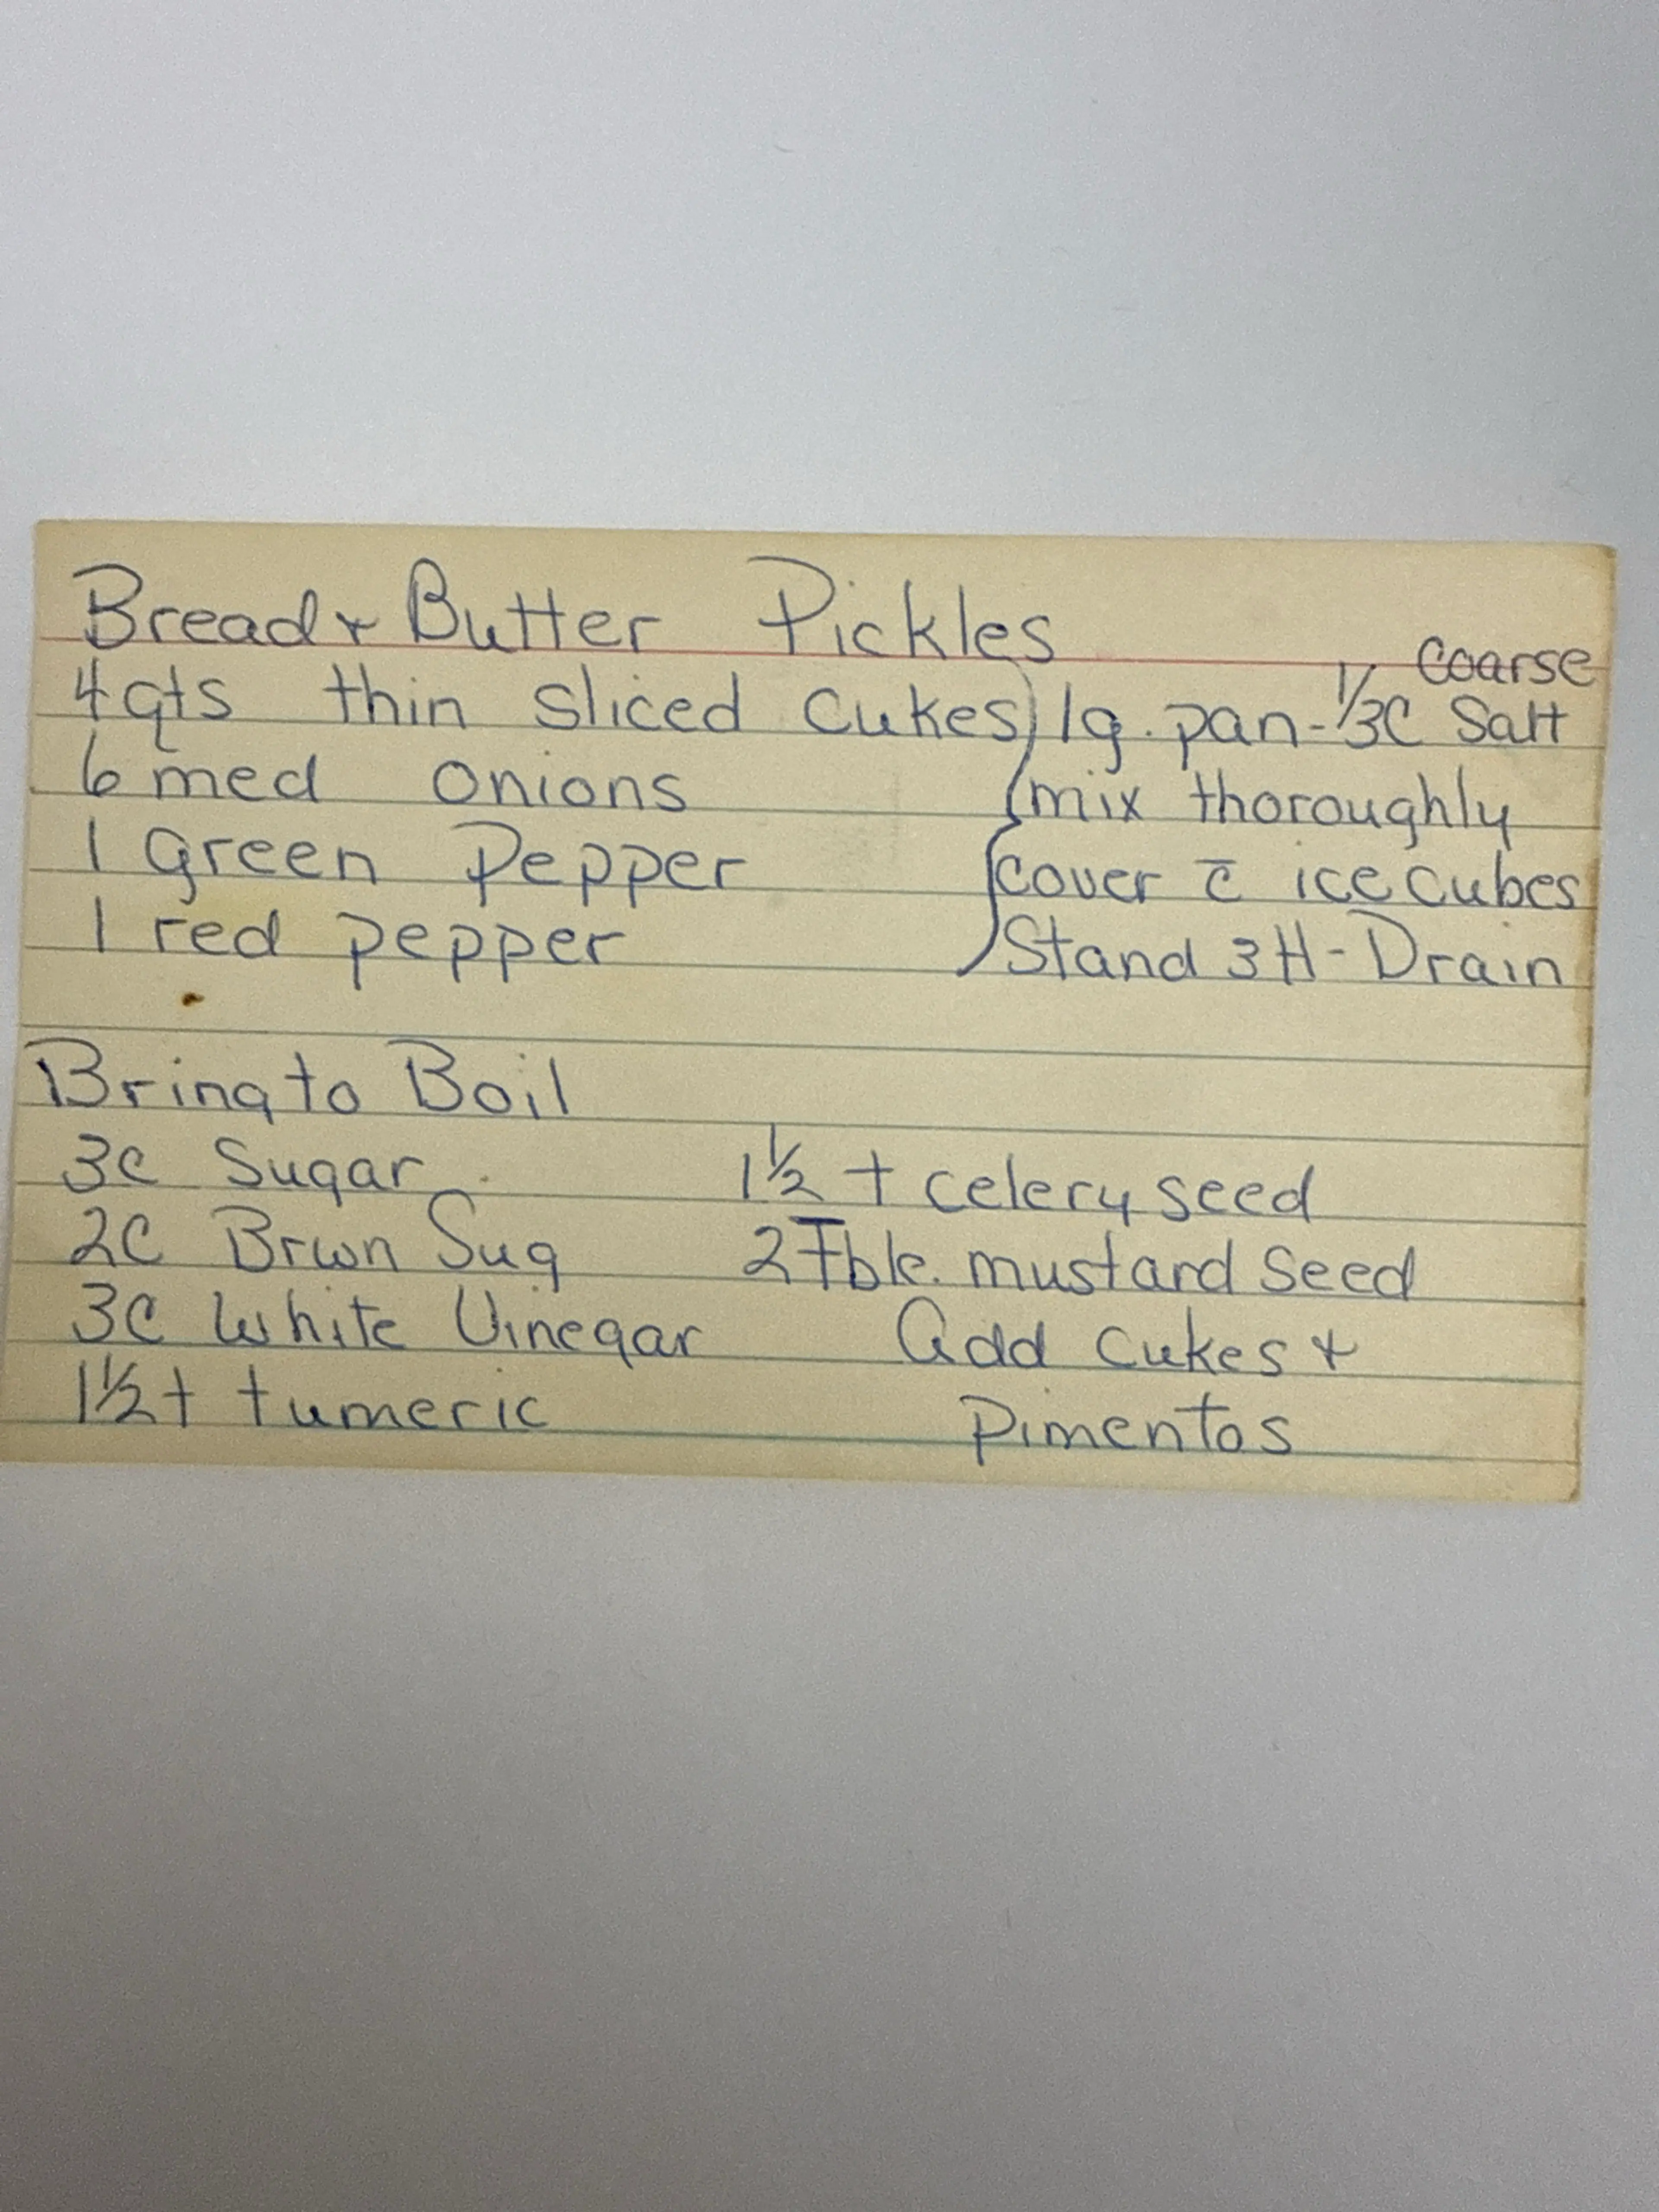 Bread & Butter Pickles
4 qts thin sliced cukes } lg. pan - 1/3 C coarse Salt
6 med onions mix thoroughly
1 green Pepper cover c̄ ice cubes
1 red pepper Stand 3H - Drain
Bring to Boil
3c Sugar 1 1/2 t celery seed
2C Brwn Sug 2 Tble. mustard seed
3C White Vinegar Add cukes &
1 1/2 t tumeric Pimentos